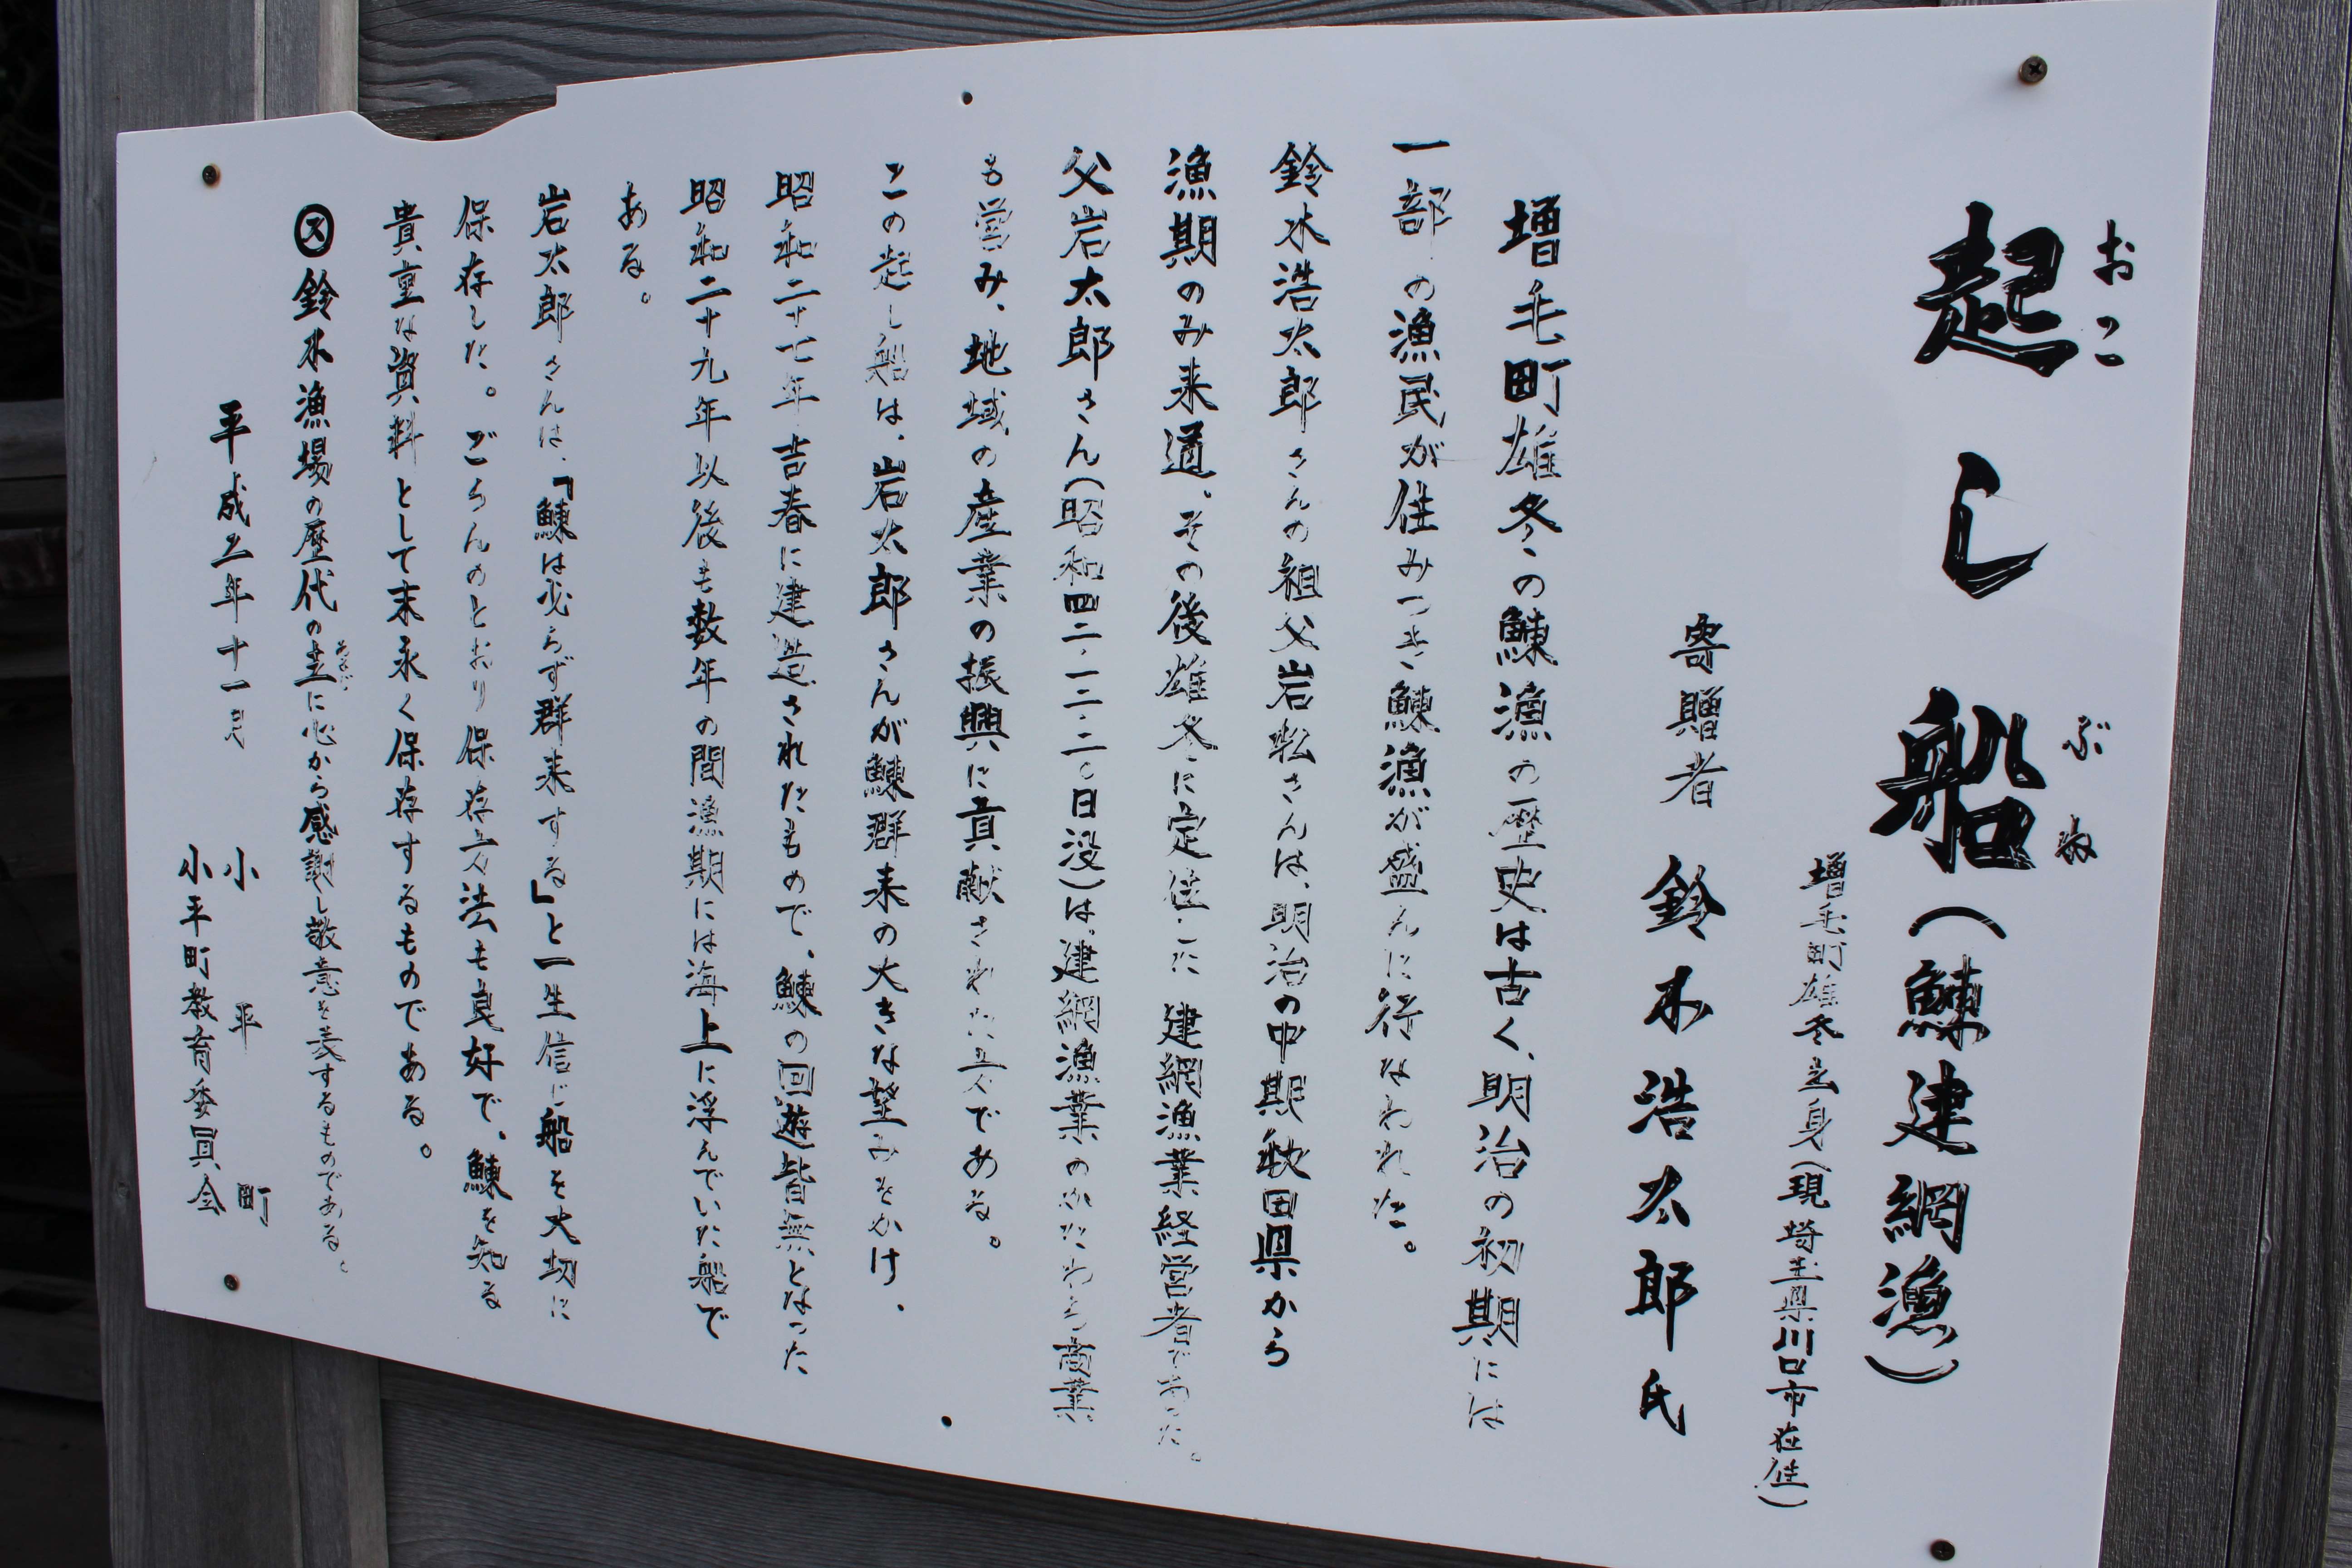 起し船（鰊建網漁）
おこ　ぶね
増毛町雄冬出身（現埼玉県川口市在住）
寄贈者　鈴木浩太郎氏
増毛町雄冬の鰊漁の歴史は古く、明治の初期には
一部の漁民が住みつき鰊漁が盛んに行なわれた。
鈴木浩太郎さんの祖父岩松さんは、明治の中期秋田県から
漁期のみ来道。その後雄冬に定住した建網漁業経営者であった。
父岩太郎さん（昭和四二・一二・二〇日没）は、建網漁業のかたわら商業
も営み、地域の産業の振興に貢献された方である。
この起し船は、岩太郎さんが鰊群来の大きな望みをかけ、
昭和二十七年吉春に建造されたもので、鰊の回遊皆無となった
昭和二十九年以後も数年の間漁期には海上に浮んでいた船で
ある。
岩太郎さんは、「鰊は必らず群来する」と一生信じ船を大切に
保存した。ごらんのとおり保存方法も良好で、鰊を知る
貴重な資料として末永く保存するものである。
㋜鈴木漁場の歴代の主に心から感謝し敬意を表するものである。
平成二年十一月
小平町
小平町教育委員会